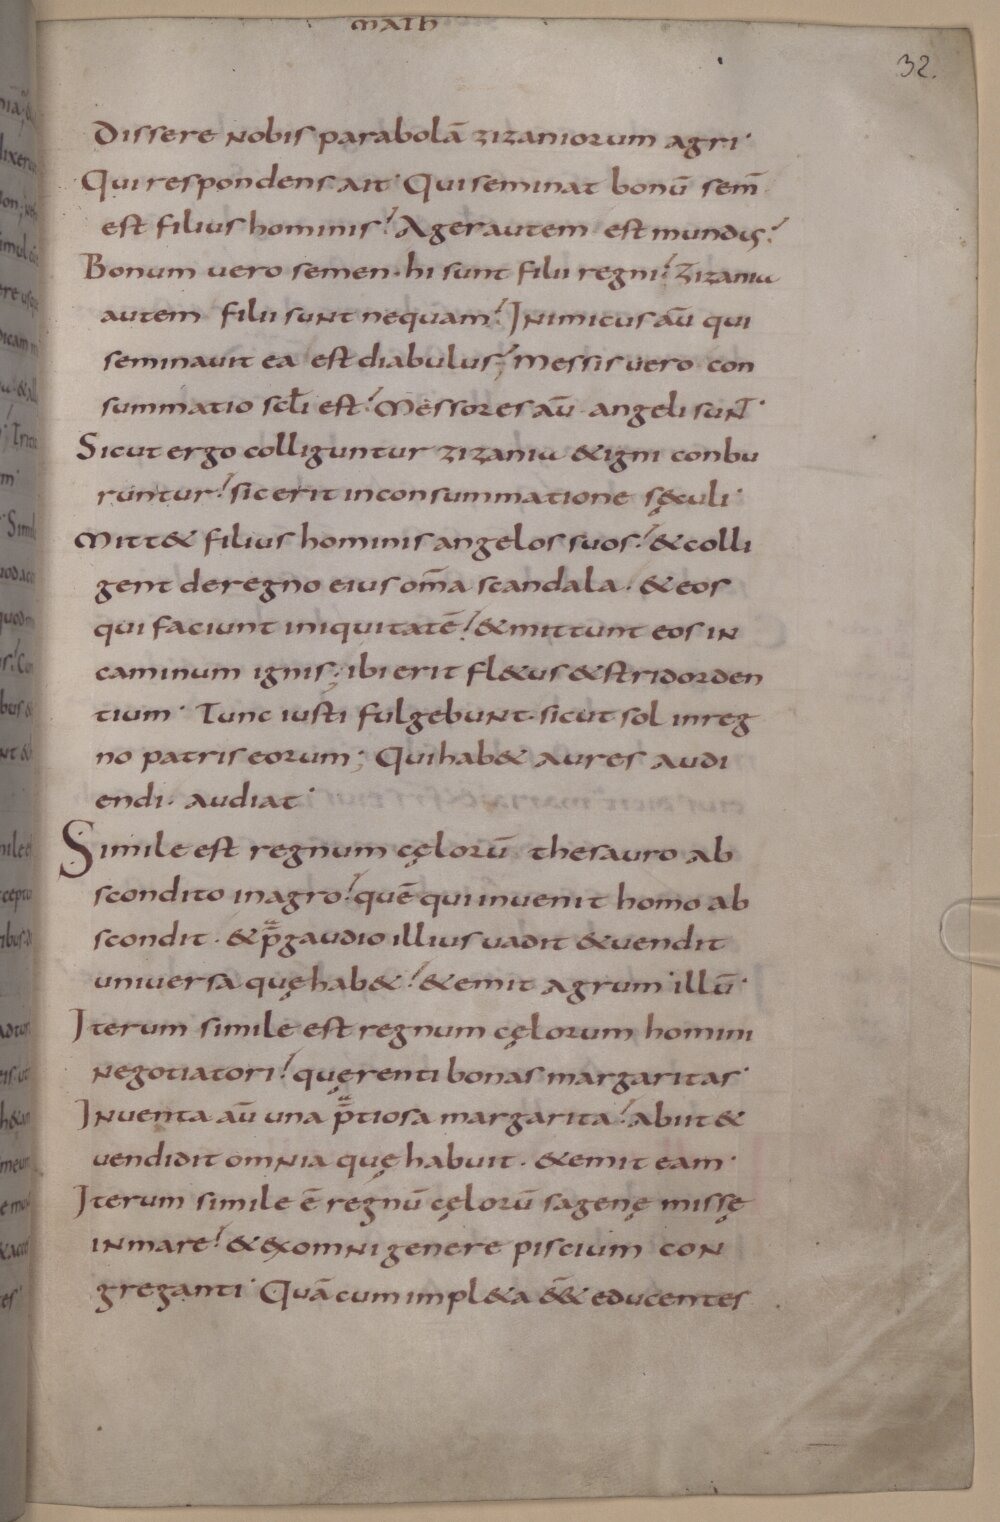 MATH
32.
Dissere nobis parabolā zizaniorum agri·
Qui respondens ait· Qui seminat bonū sem̄
est filius hominis? Ager autem est mundus?
Bonum vero semen· hi sunt filii regni? Zizania
autem filii sunt nequam? Inimicus aū qui
seminavit ea est diabulus; Messis vero con
summatio sc̄li est? Messores aū angeli sunt·
Sicut ergo colliguntur zizania & igni conbu
runtur? sic erit in consummatione sęculi·
Mitt& filius hominis angelos suos? & colli
gent de regno eius om̄a scandala· & eos
qui faciunt iniquitatē? & mittunt eos in
caminum ignis; ibi erit fl&us & stridor den
tium· Tunc iusti fulgebunt· sicut sol in reg
no patris eorum; Qui hab& aures audi
endi· audiat·
Simile est regnum cęlorū thesauro ab
scondito in agro? quē qui invenit homo ab
scondit· & p̄ gaudio illius vadit & vendit
universa quę hab&? & emit agrum illū·
Iterum simile est regnum cęlorum homini
negotiatori? quęrenti bonas margaritas·
Inventa aū una p̄tiosa margarita? abiit &
vendidit omnia quę habuit· & emit eam·
Iterum simile ē regnū cęlorū sagenę missę
in mare? & ex omni genere piscium con
greganti· Quā cum impl&a ēē& educentes